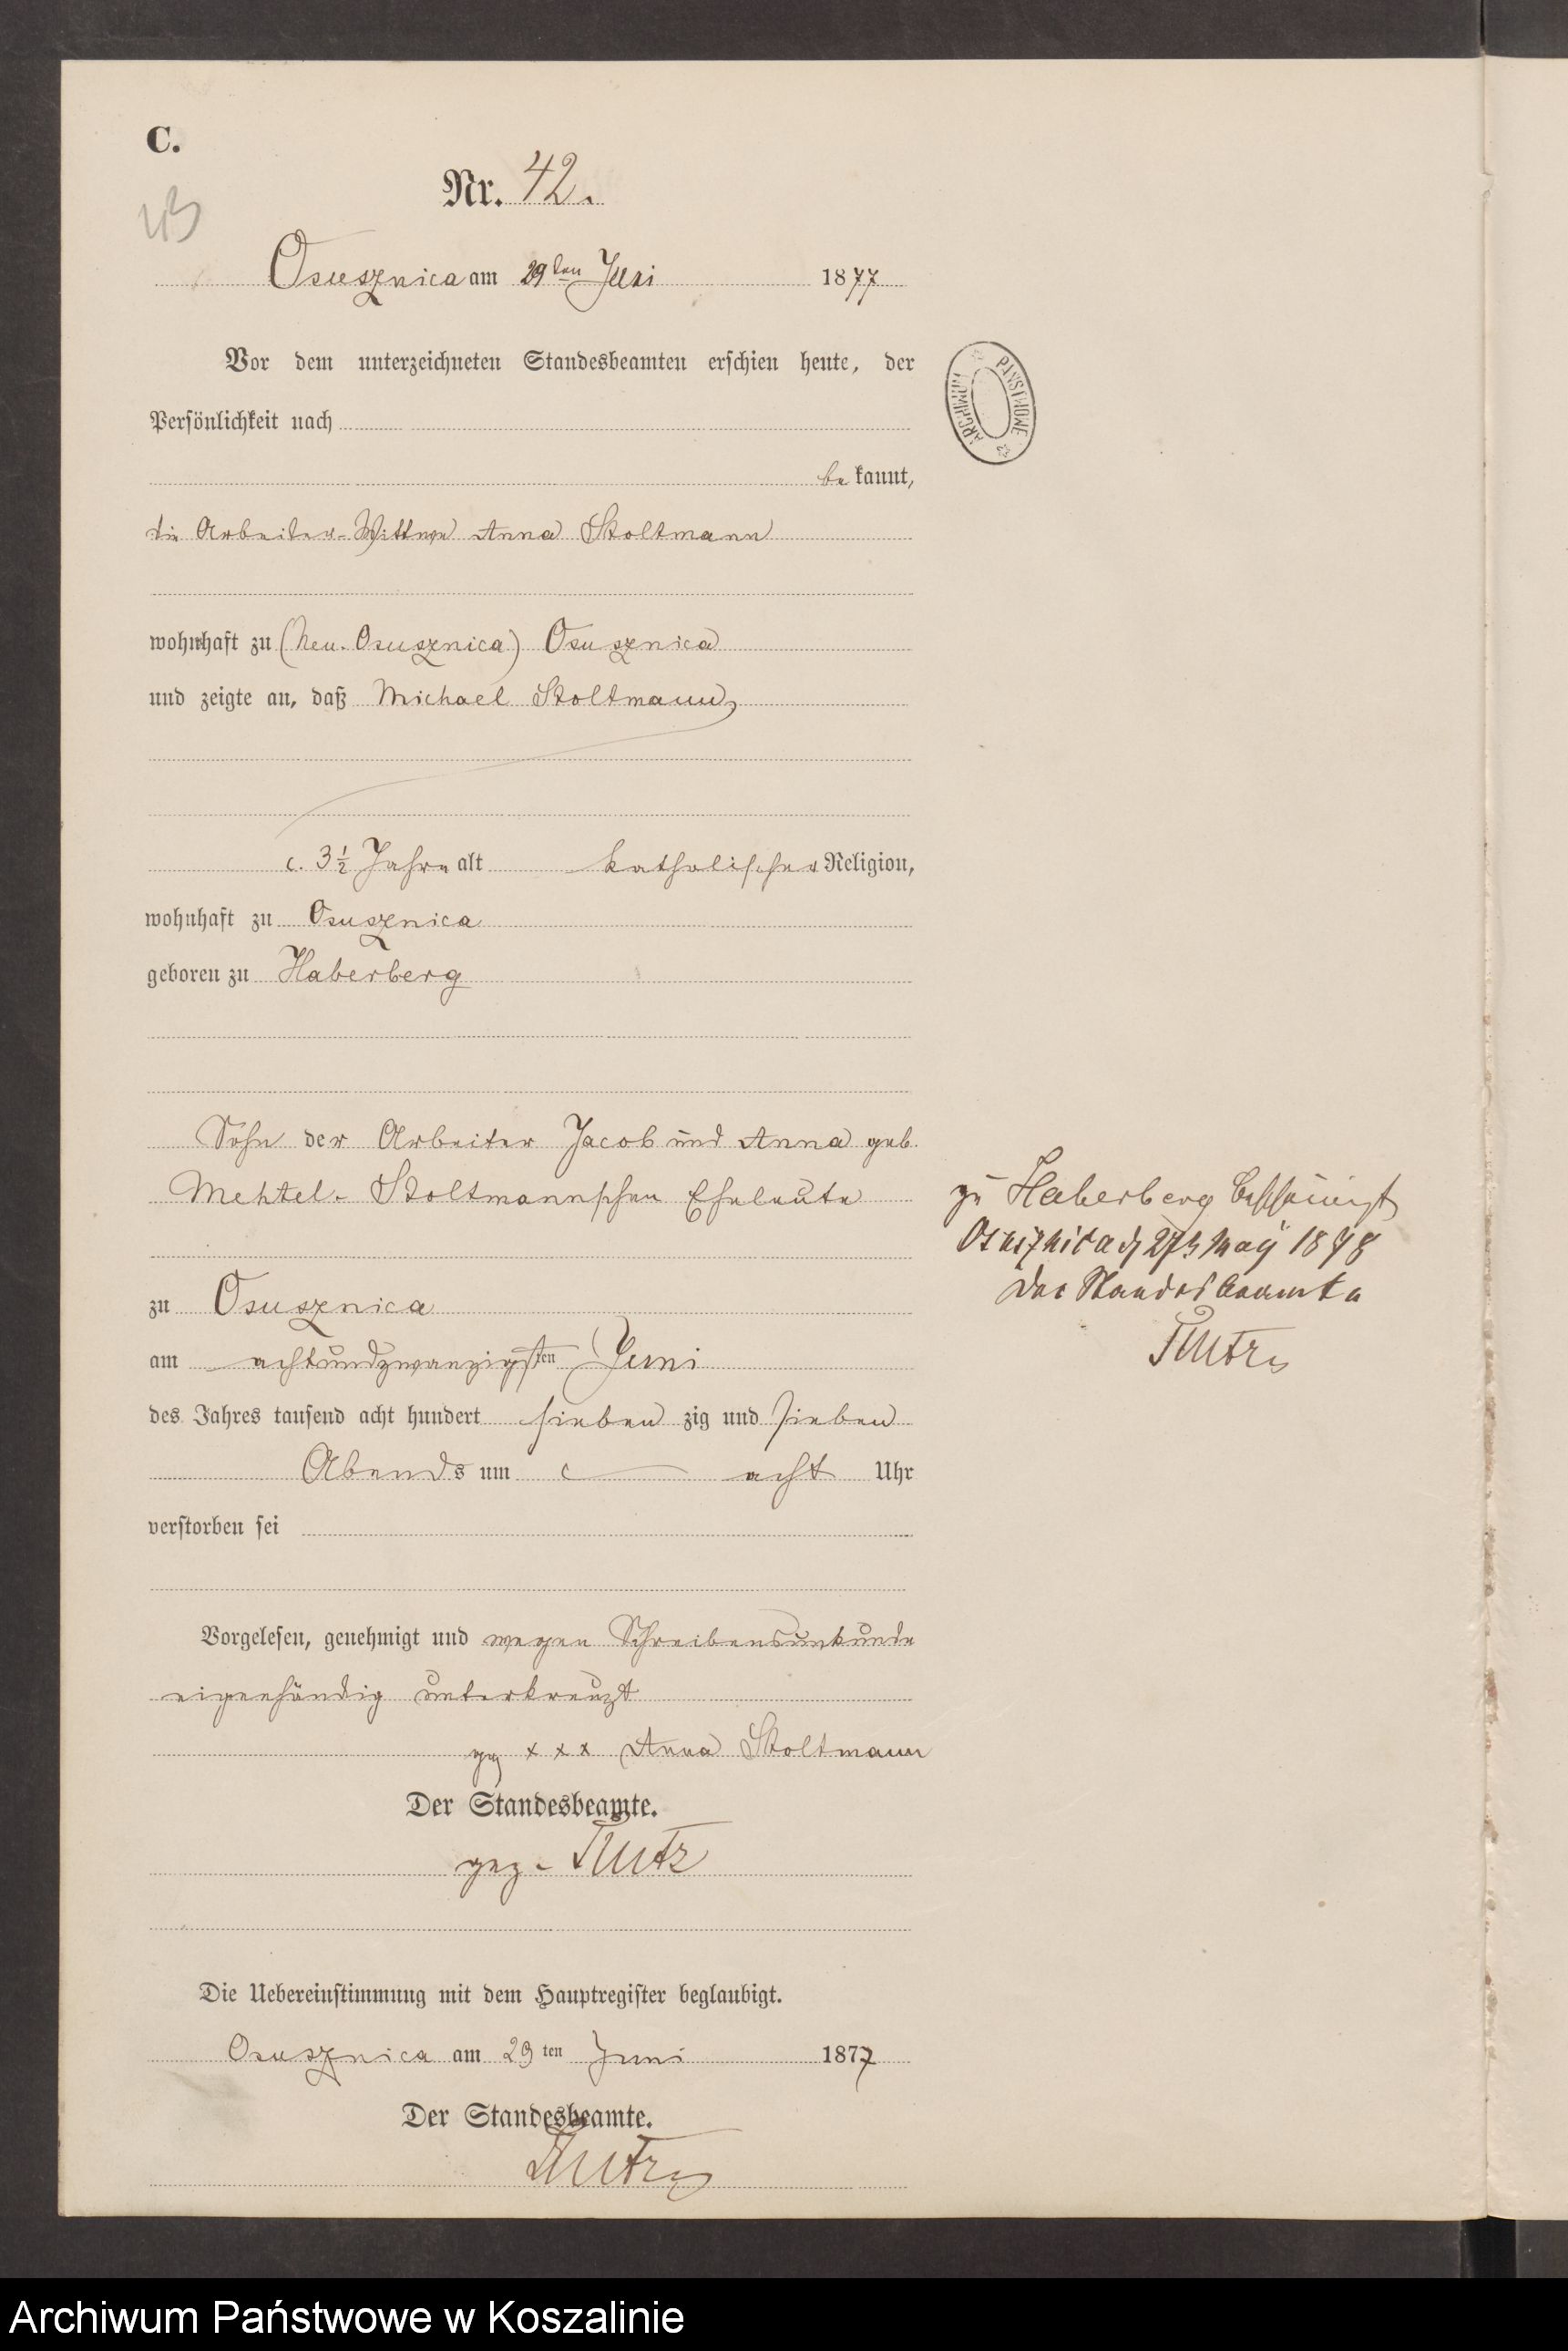 C.
Nr. 42.
43
Osusznica am 29ten Juni 1877
Vor dem unterzeichneten Standesbeamten erschien heute, der
Persönlichkeit nach
be kannt,
die Arbeiter-Wittwe Anna Stoltmann
wohnhaft zu (Neu-Osusznica) Osusznica
und zeigte an, daß Michael Stoltmann,
c. 3 1/2 Jahre alt katholischer Religion,
wohnhaft zu Osusznica
geboren zu Haberberg
Sohn der Arbeiter Jacob und Anna geb.
Mehtel-Stoltmannschen Eheleute
zu Osusznica
am achtundzwanzigsten Juni
des Jahres tausend acht hundert sieben zig und sieben
Abends um c acht Uhr
verstorben sei
Vorgelesen, genehmigt und wegen Schreibensunkunde
eigenhändig unterkreuzt
gz x x x Anna Stoltmann
Der Standesbeamte.
gez.
Die Uebereinstimmung mit dem Hauptregister beglaubigt.
Osusznica am 29 ten Juni 1877
Der Standesbeamte.
zu Haberberg bescheinigt
Osusznica d 27 May 1878
Der Standesbeamte
ARCHIWUM PAŃSTWOWE
Archiwum Państwowe w Koszalinie